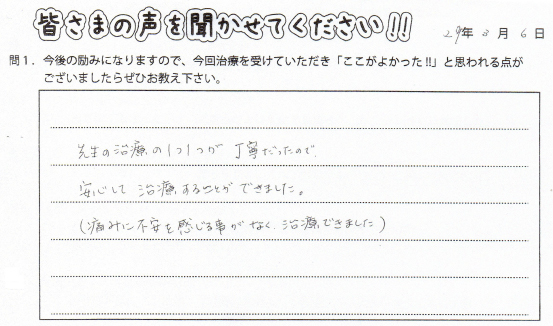 皆さまの声を聞かせてください!!
29年 8月 6日
問1．今後の励みになりますので、今回治療を受けていただき「ここがよかった!!」と思われる点が
ございましたらぜひお教え下さい。
先生の治療の1つ1つが 丁寧だったので、
安心して 治療することが できました。
(痛みに不安を感じる事がなく、治療できました)